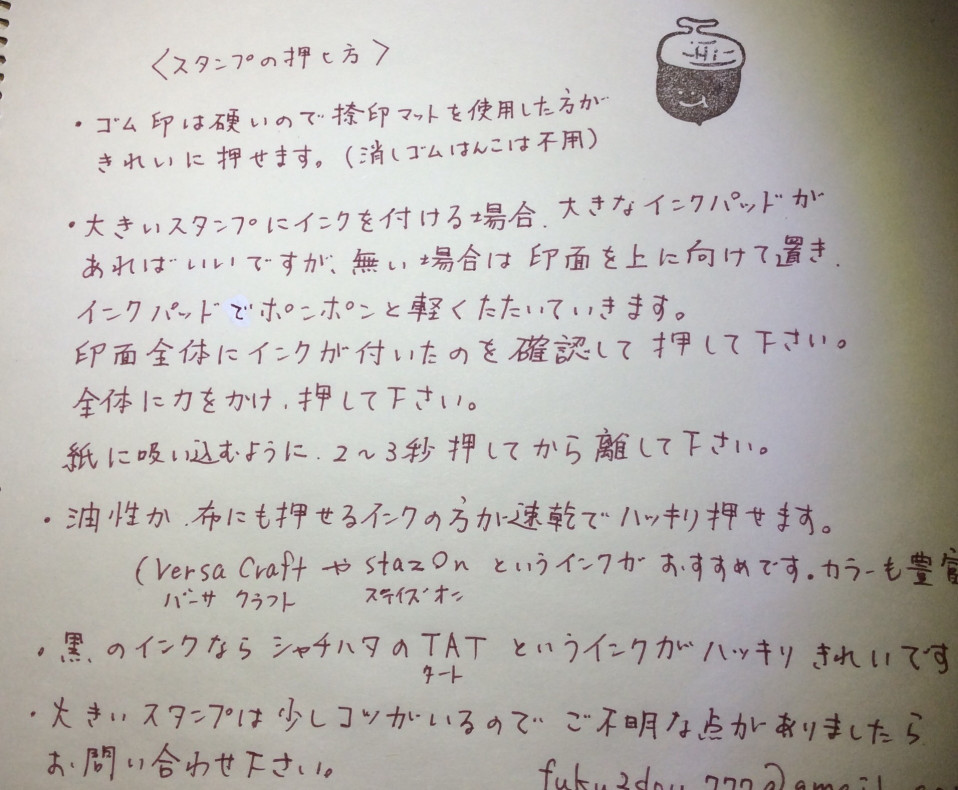 〈スタンプの押し方〉
Hi
・ゴム印は硬いので捺印マットを使用した方が
きれいに押せます。(消しゴムはんこは不用)
・大きいスタンプにインクを付ける場合、大きなインクパッドが
あればいいですが、無い場合は印面を上に向けて置き、
インクパッドでポンポンと軽くたたいていきます。
印面全体にインクが付いたのを確認して押して下さい。
全体に力をかけ、押して下さい。
紙に吸い込むように、2〜3秒押してから離して下さい。
・油性か、布にも押せるインクの方が速乾でハッキリ押せます。
(Versa Craft や StazOn というインクがおすすめです。カラーも豊富
バーサ クラフト ステイズオン
・黒のインクなら シャチハタのTATというインクがハッキリきれいです
タート
・大きいスタンプは少しコツがいるのでご不明な点がありましたら
お問い合わせ下さい。